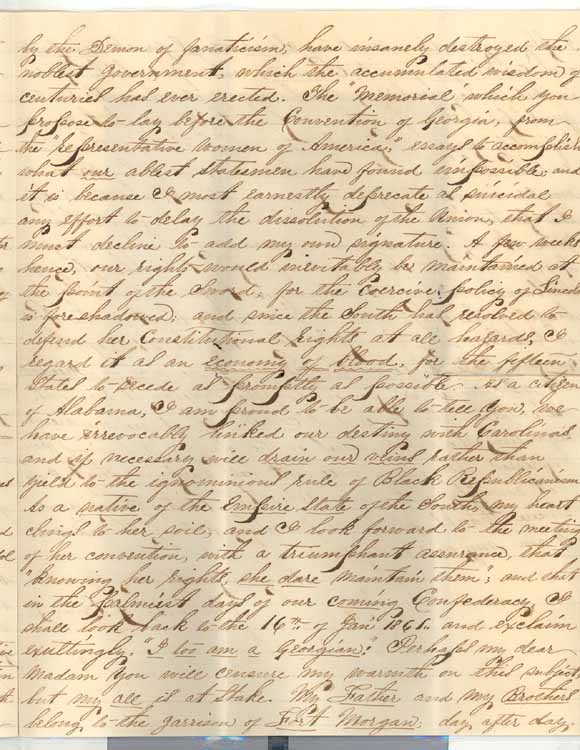 by the Demon of fanaticism, have insanely destroyed the
noblest Government, which the "accumulated wisdom of
centuries has ever erected. The "Memorial" which you
propose to lay before the Convention of Georgia, from
the "representative women of America," essays to accomplish
what our ablest statesmen have found impossible, and
it is because I most earnestly deprecate as suicidal
any effort to delay the dissolution of the Union, that I
must decline to add my own signature. A few weeks
hence, our rights would inevitably be maintained at
the point of the Sword, for the Coercive policy of Lincoln
is foreshadowed; and since the South has resolved to
defend her Constitutional Rights at all hazards, I
regard it as an economy of blood, for the fifteen
States to secede as promptly as possible. As a citizen
of Alabama, I am proud to be able to tell you, we
have irrevocably linked our destiny with Carolinas
and if necessary will drain our veins rather than
yield to the ignominious rule of Black Republicanism
As a native of the Empire State of the South, my heart
clings to her soil, and I look forward to the meeting
of her convention with a triumphant assurance, that
"knowing her rights, she dare maintain them"; and that
in the palmiest days of our coming Confederacy I
shall look back to the 16th of Jan' 1861. and exclaim
exultingly. "I too am a Georgian"! Perhaps my dear
Madam you will censure my warmth on this subject,
but my all is at stake. My Father and my Brothers
belong to the garrison of Fort Morgan; day after day,